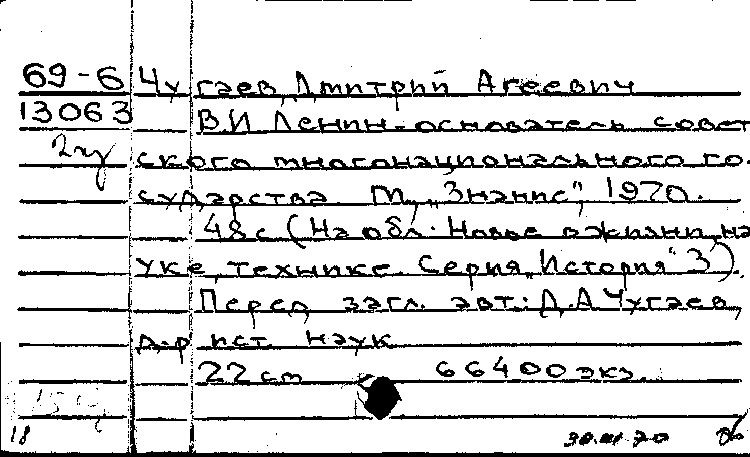 69-6 Чугаев, Дмитрий Агеевич
13063 В.И. Ленин - основатель совет
2 ского многонационального го-
сударства. М., "Знание", 1970.
48 с. (На обл.: Новое в жизни, на
уке, технике. Серия "История" 3).
Перед загл. авт.: Д.А. Чугаев,
д-р ист. наук
22 cm 66400 экз.
18 30.III.70